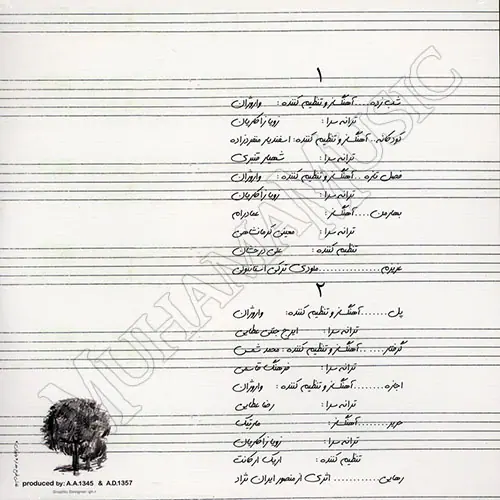 ۱
شب زده.....آهنگساز و تنظیم کننده: واروژان
ترانه سرا: زویا زاکاریان
کودکانه...آهنگساز و تنظیم کننده: اسفندیار منفردزاده
ترانه سرا: شهیار قنبری
فصل تازه...آهنگساز و تنظیم کننده: واروژان
ترانه سرا: زویا زاکاریان
بهار من......آهنگساز: عمادرام
ترانه سرا: معینی کرمانشاهی
تنظیم کننده: علی درخشان
عزیزم................ملودی ترکی استانبولی
۲
پل.........آهنگساز و تنظیم کننده: واروژان
ترانه سرا: ایرج جنتی عطایی
گرفتار.......آهنگساز و تنظیم کننده: محمد شمس
ترانه سرا: فرهنگ قاسمی
اجازه........آهنگساز و تنظیم کننده: واروژان
ترانه سرا: رضا عطایی
حریر.........آهنگساز: مارتیک
ترانه سرا: زویا زاکاریان
تنظیم کننده: اریک ارکانت
رهایی...........اثری از منصور ایران نژاد
produced by: A.A.1345 & A.D.1357
MUHAMAMUSIC